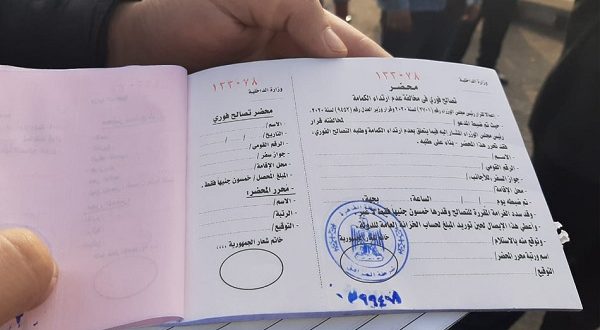 ١٣٣٠٧٨
وزارة الداخلية
محضر
تصالح فوري في مخالفة عدم ارتداء الكمامة
رئيس مجلس الوزراء المشار إليه فيما يتعلق بعدم ارتداء الكمامة وطلبه التصالح الفوري،
فقد تحرر هذا المحضر، بناء على طلبه.
الاسم/
الرقم القومي/
جواز السفر للأجانب/
محل الإقامة/
تم ضبطه يوم / / الساعة: بجهة:
وقد سدد الغرامة المقررة للتصالح وقدرها خمسون جنيها فقط لا غير
وأعطي هذا الإيصال لحين توريد المبلغ لحساب الخزانة العامة للدولة
وتوقع منه بالاستلام/
اسم ورتبة محرر المحضر/
التوقيع/
١٣٣٠٧٨
وزارة الداخلية
محضر تصالح فوري
- الاسم/
- التاريخ/ / /
- الرقم القومي/
- جواز سفر/
- محل الإقامة/
- المبلغ المحصل/ خمسون جنيها فقط.
- محرر المحضر:
- الاسم/
- الرتبة/
- التوقيع/
خاتم شعار الجمهورية ....